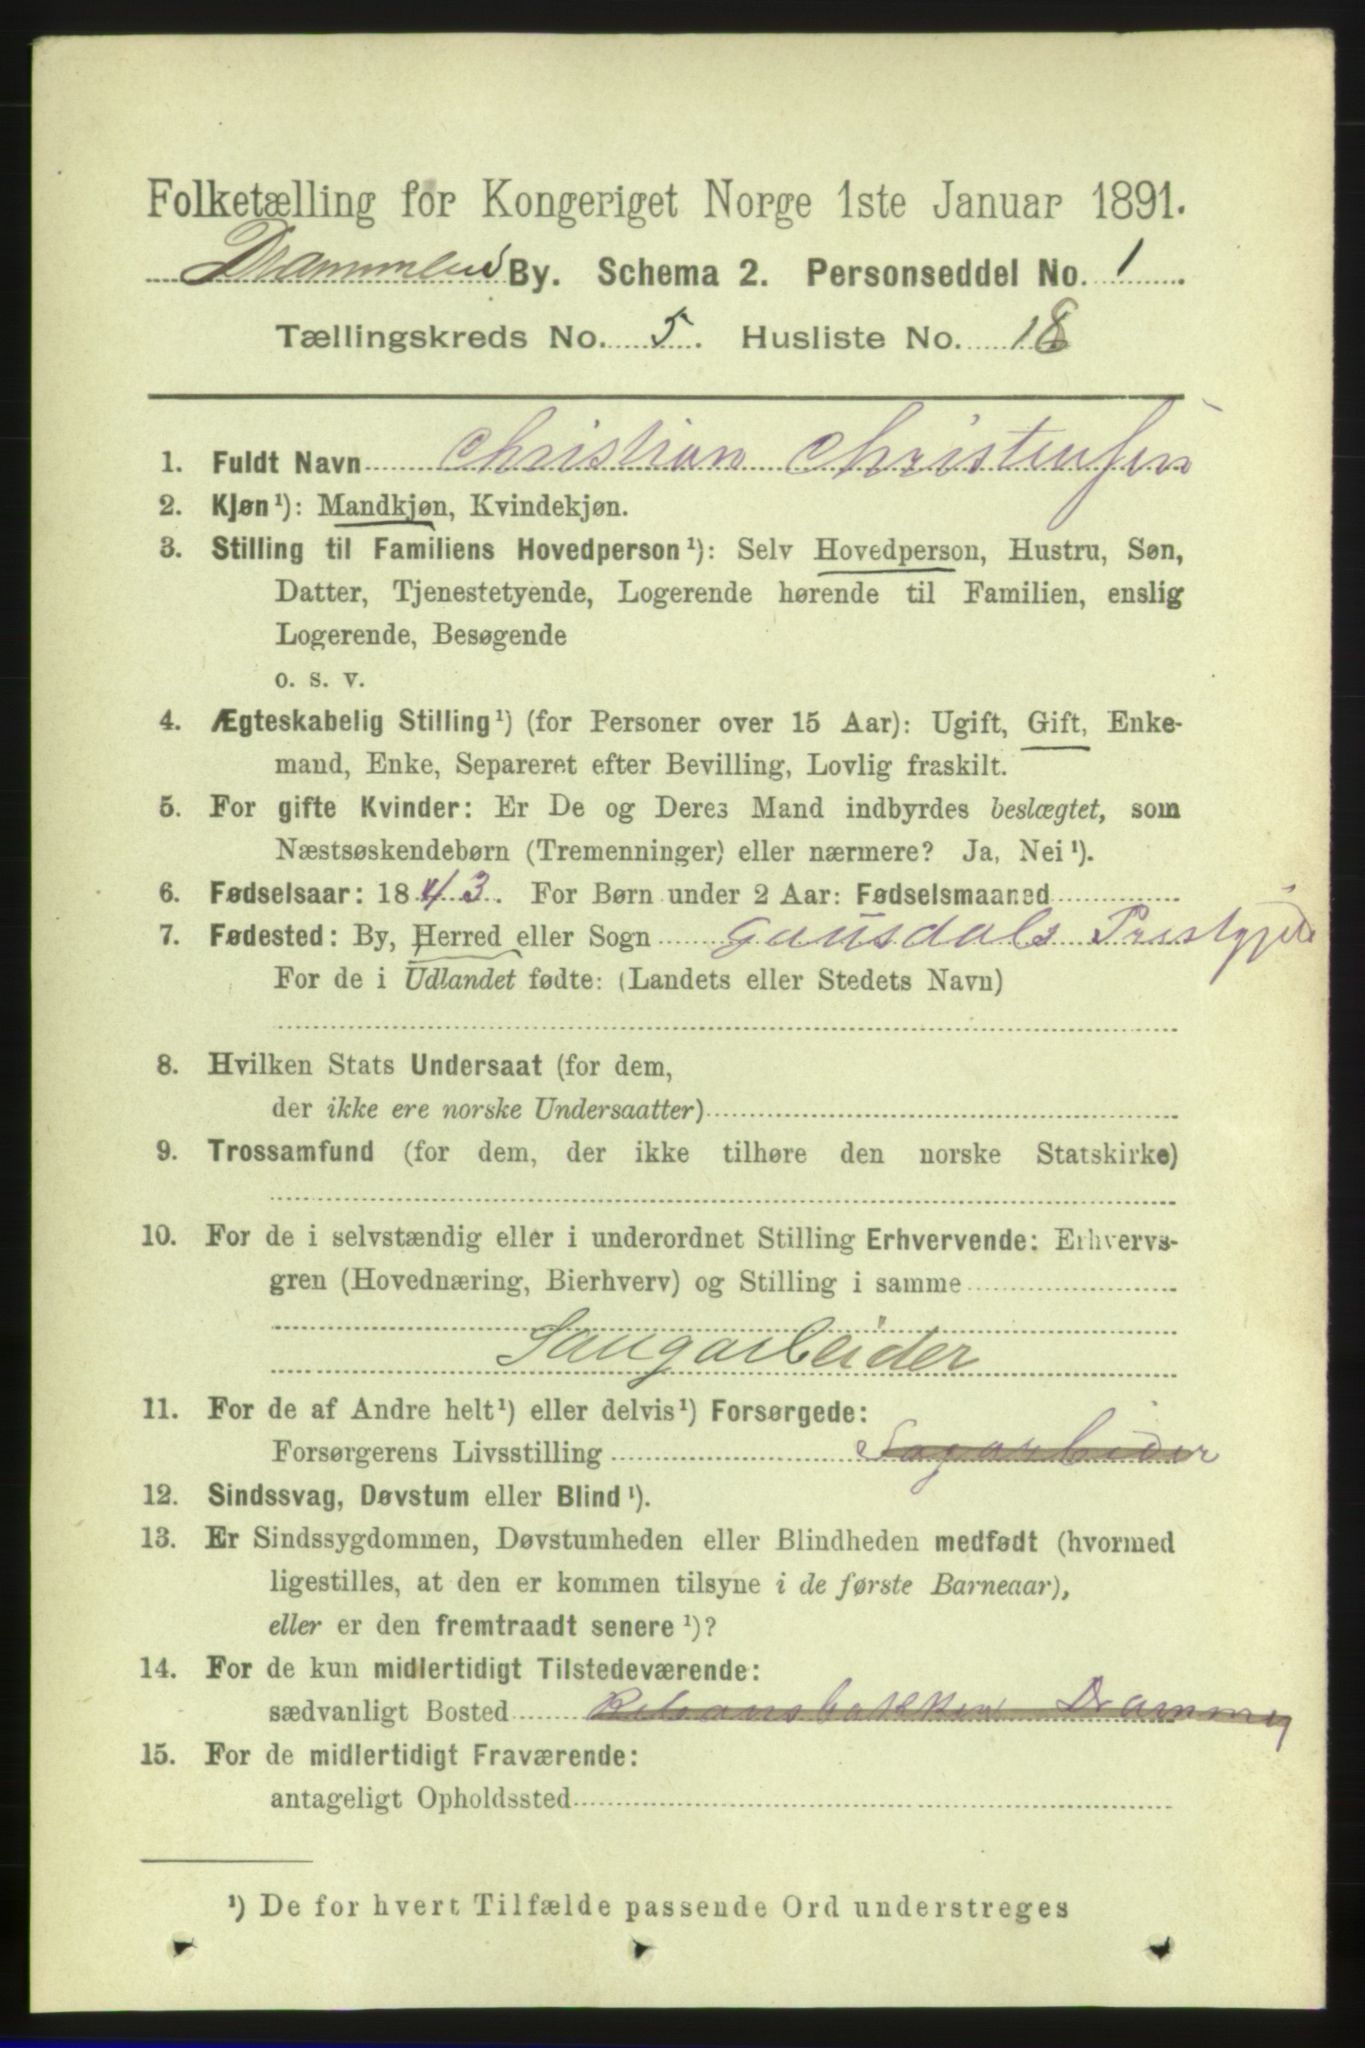 Folketælling for Kongeriget Norge 1ste Januar 1891.
Drammens By. Schema 2. Personseddel No. 1
Tællingskreds No. 5. Husliste No. 18
1. Fuldt Navn Christian Christensen
2. Kjøn¹): Mandkjøn, Kvindekjøn.
3. Stilling til Familiens Hovedperson¹): Selv Hovedperson, Hustru, Søn,
Datter, Tjenestetyende, Logerende hørende til Familien, enslig
Logerende, Besøgende
o. s. v.
4. Ægteskabelig Stilling¹) (for Personer over 15 Aar): Ugift, Gift, Enke-
mand, Enke, Separeret efter Bevilling, Lovlig fraskilt.
5. For gifte Kvinder: Er De og Deres Mand indbyrdes beslægtet, som
Næstsøskendebørn (Tremenninger) eller nærmere? Ja, Nei¹).
6. Fødselsaar: 1843. For Børn under 2 Aar: Fødselsmaaned
7. Fødested: By, Herred eller Sogn Gausdals Prestgjeld
For de i Udlandet fødte: (Landets eller Stedets Navn)
8. Hvilken Stats Undersaat (for dem,
der ikke ere norske Undersaatter)
9. Trossamfund (for dem, der ikke tilhøre den norske Statskirke)
10. For de i selvstændig eller i underordnet Stilling Erhvervende: Erhvervs-
gren (Hovednæring, Bierhverv) og Stilling i samme
Saugarbeider
11. For de af Andre helt¹) eller delvis¹) Forsørgede:
Forsørgerens Livsstilling Sagarbeider
12. Sindssvag, Døvstum eller Blind¹).
13. Er Sindssygdommen, Døvstumheden eller Blindheden medfødt (hvormed
ligestilles, at den er kommen tilsyne i de første Barneaar),
eller er den fremtraadt senere¹)?
14. For de kun midlertidigt Tilstedeværende:
sædvanligt Bosted Drammen
15. For de midlertidigt Fraværende:
antageligt Opholdssted
¹) De for hvert Tilfælde passende Ord understreges